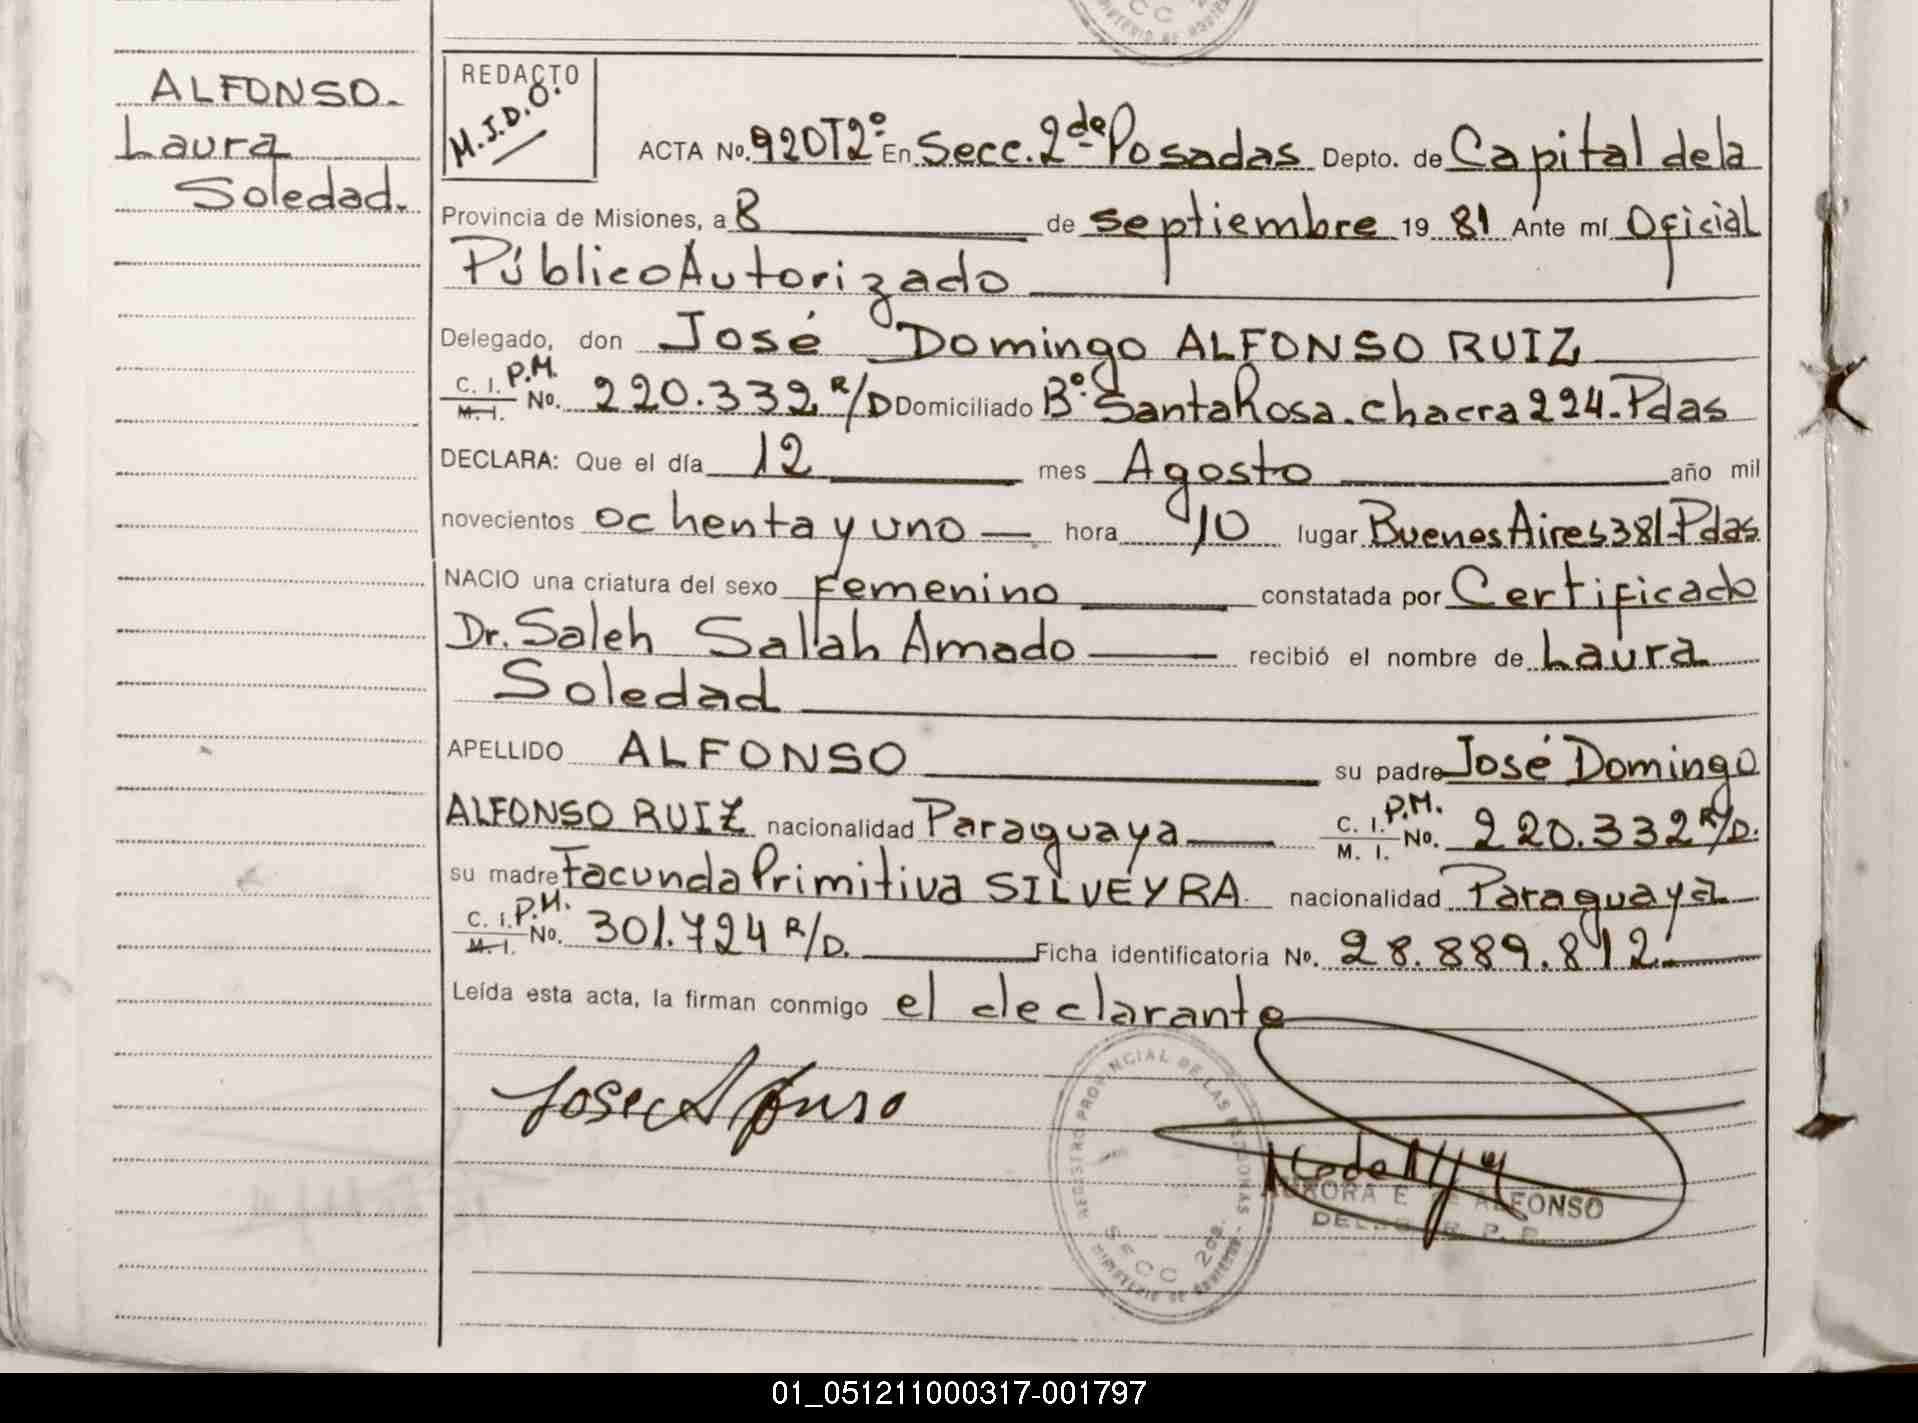 ALFONSO.
Laura
Soledad.
REDACTO
M.J.D.O.
ACTA No. 920T2º En Secc. 2da Posadas Depto. de Capital dela
Provincia de Misiones, a 8 de septiembre 19 81 Ante mí Oficial
Público Autorizado
Delegado, don José Domingo ALFONSO RUIZ
C. I. P.M. M. I. No. 220.332 R/D Domiciliado Bº. Santa Rosa. chacra 224. Pdas
DECLARA: Que el día 12 mes Agosto año mil
novecientos ochenta y uno hora 10 lugar Buenos Aires 381-Pdas
NACIO una criatura del sexo Femenino constatada por Certificado
Dr. Saleh Sallah Amado recibió el nombre de Laura
Soledad
APELLIDO ALFONSO su padre José Domingo
ALFONSO RUIZ nacionalidad Paraguaya C. I. P.M. M. I. No. 220.332 R/D.
su madre Facunda Primitiva SILVEYRA. nacionalidad Paraguaya
C. I. P.M. M. I. No. 301.724 R/D. Ficha identificatoria No. 28.889.812.
Leída esta acta, la firman conmigo el declarante
Jose Alfonso
REGISTRO PROVINCIAL DE LAS PERSONAS
SECC 2da.
MINISTERIO DE GOBIERNO
AURORA E DE ALFONSO
R. P. P.
01_051211000317-001797